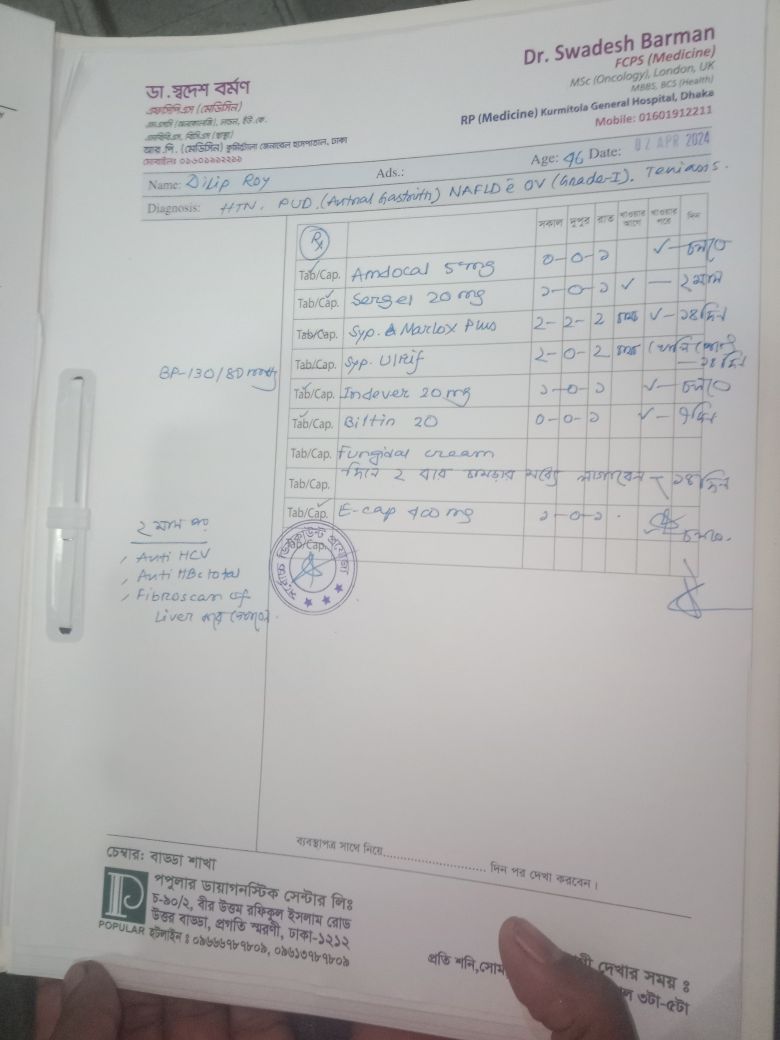 ডা. স্বদেশ বর্মণ
এফসিপিএস (মেডিসিন)
এমবিবিএস, বিসিএস (স্বাস্থ্য)
আর.পি. (মেডিসিন) কুর্মিটোলা জেনারেল হাসপাতাল, ঢাকা
Dr. Swadesh Barman
FCPS (Medicine)
MSc (Oncology), London, UK
MBBS, BCS (Health)
RP (Medicine) Kurmitola General Hospital, Dhaka
Mobile: 01601912211
Name: Dilip Roy Ads.: Age: 46 Date: 02 APR 2024
Diagnosis: HTN, PUD, (Antral Gastritis) NAFLD ē OV (Grade-I).
সকাল দুপুর রাত খাওয়ার আগে খাওয়ার পরে দিন
Rx
Tab/Cap. Amdocal 5 mg ০-০-১ ✓ - চলবে
Tab/Cap. Sergel 20 mg ১-০-১ ✓ - ২ মাস
Tab/Cap. Syp. Marlox Plus ২-২-২ চামচ ✓ - ১৪ দিন
Tab/Cap. Syp. Ulrif ২-০-২ চামচ - ১৪ দিন
Tab/Cap. Indever 20 mg ১-০-১ ✓ - চলবে
Tab/Cap. Biltin 20 ০-০-১ ✓ - ৭ দিন
Tab/Cap. Fungidal cream
Tab/Cap. দিনে ২ বার লাগাবেন - ১৪ দিন
Tab/Cap. E-cap 400 mg ১-০-১ চলবে
Tab/Cap.
BP-130/80 mmHg
২ মাস পর
Anti HCV
Anti HBc total
Fibroscan of
Liver
ব্যবস্থাপত্র সাথে নিয়ে.............................. দিন পর দেখা করবেন।
চেম্বার: বাড্ডা শাখা
পপুলার ডায়াগনস্টিক সেন্টার লিঃ
চ-৯০/২, বীর উত্তম রফিকুল ইসলাম রোড
উত্তর বাড্ডা, প্রগতি স্মরণী, ঢাকা-১২১২
POPULAR হটলাইন : ০৯৬৬৬৭৮৭৮০৯, ০৯৬১৩৭৮৭৮০৯
দেখার সময় :
প্রতি শনি,সোম
৩টা-৫টা